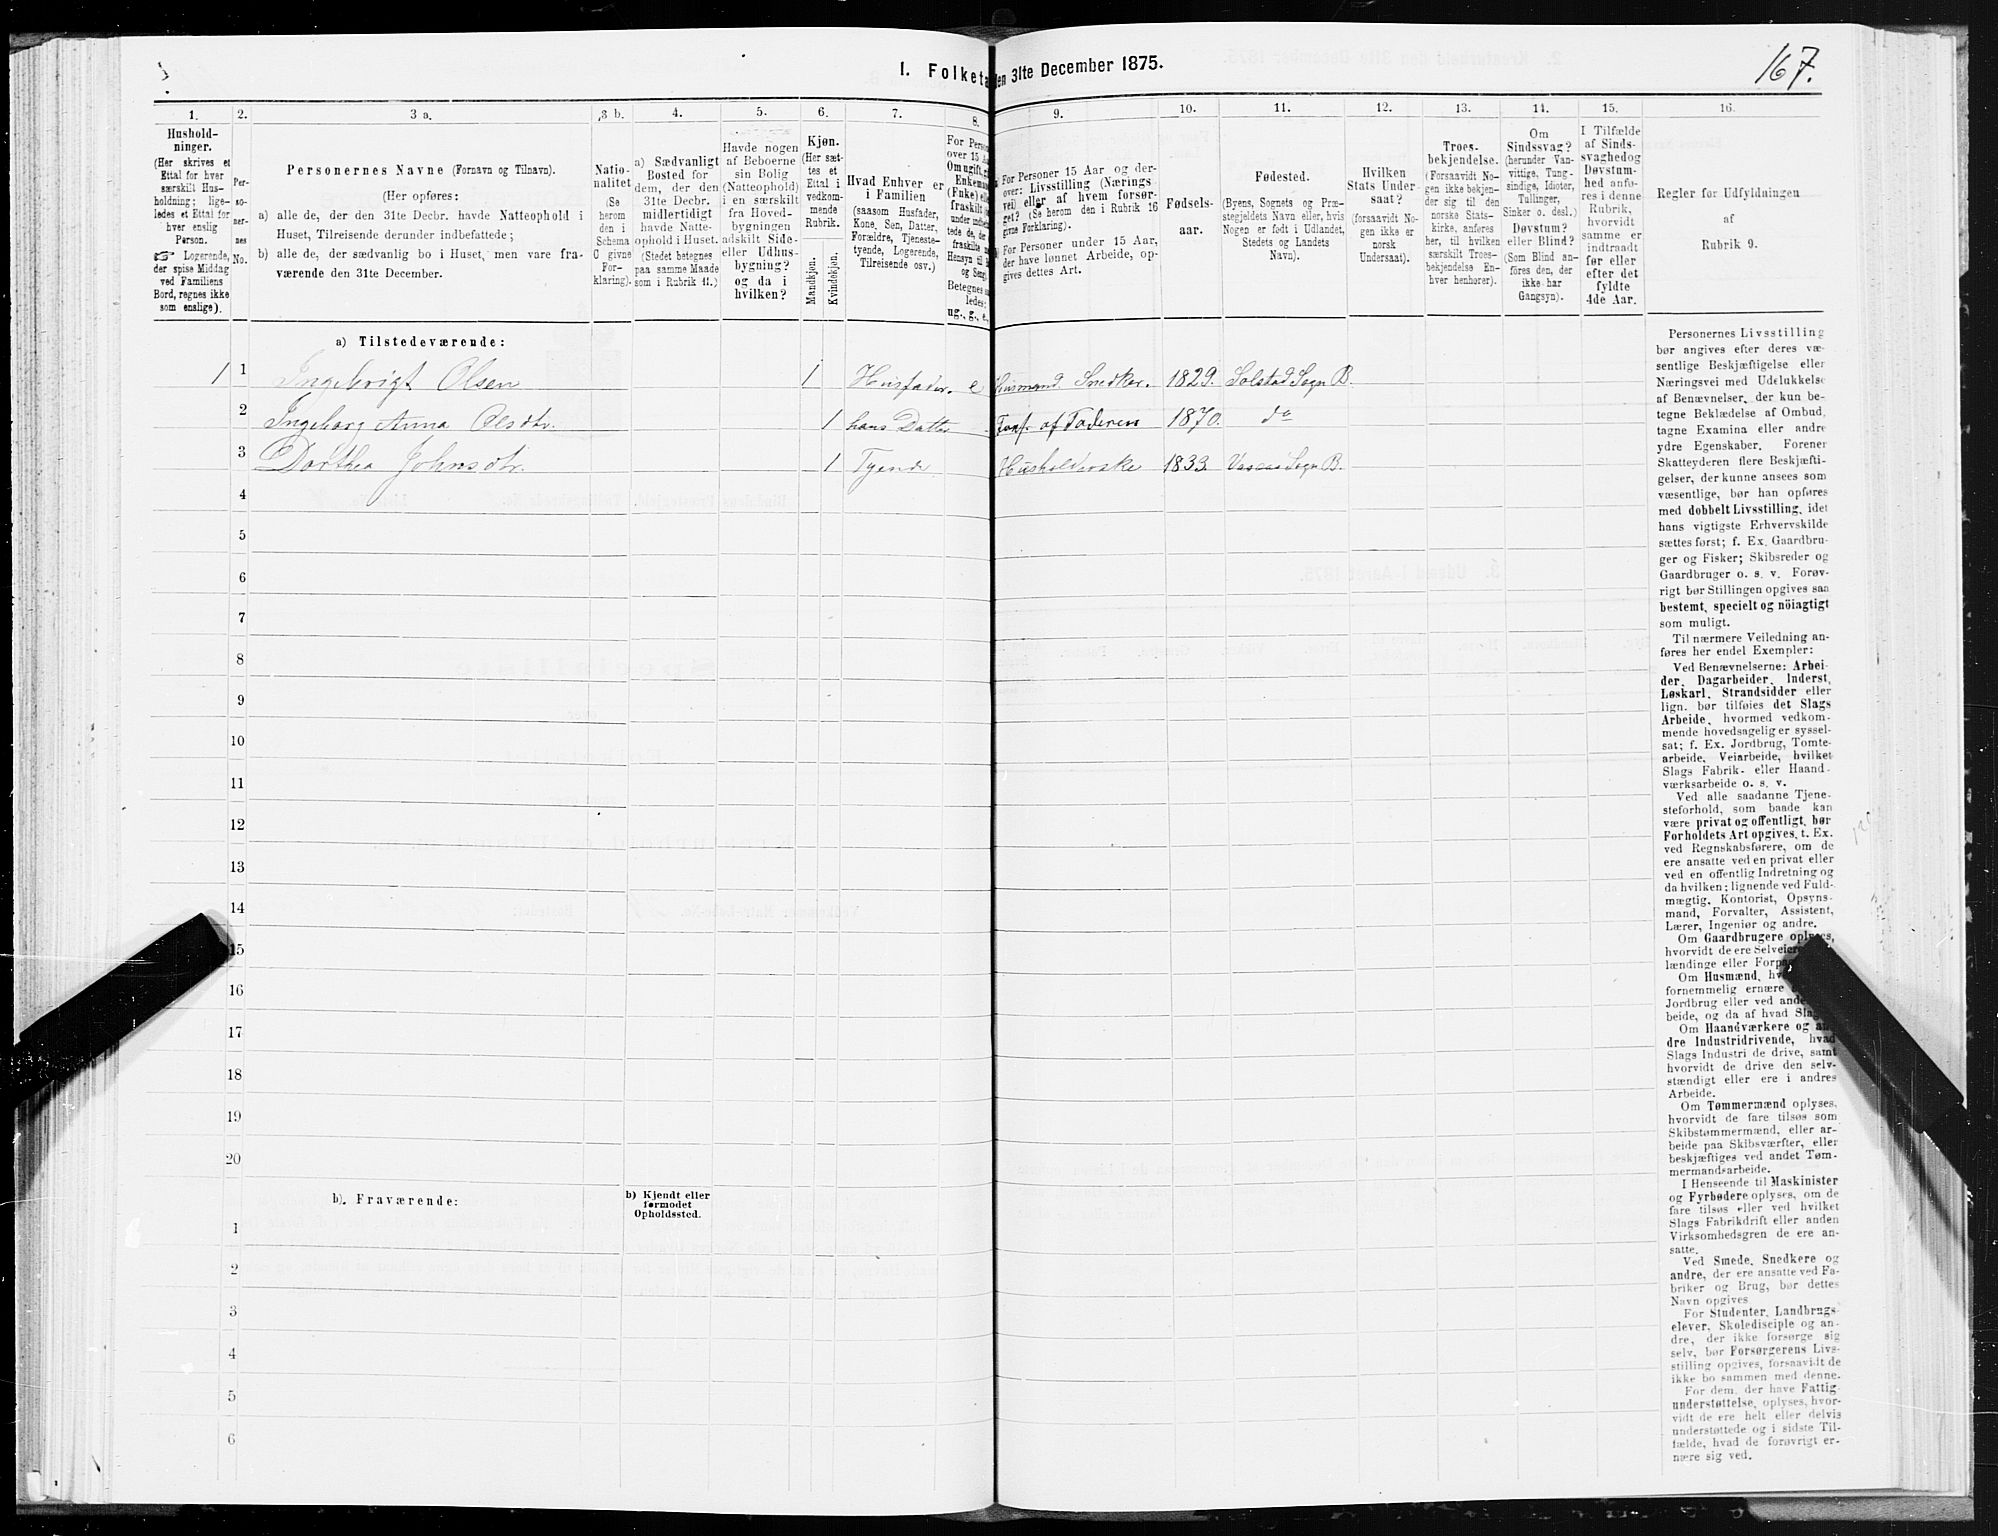 1. Folketa
den 31te December 1875.
167.
1.
2.
3 a.
3 b.
4.
5.
6.
7.
8.
9.
10.
11.
12.
13.
14.
15.
16.
Hushold-
ninger.
(Her skrives et
Ettal for hver
særskilt Hus-
holdning; lige-
ledes et Ettal for
hver enslig
Person.
☞ Logerende,
der spise Middag
ved Familiens
Bord, regnes ikke
som enslige).
Per-
so-
ner-
nes
No.
Personernes Navne (Fornavn og Tilnavn).
(Her opføres:
a) alle de, der den 31te Decbr. havde Natteophold i
Huset, Tilreisende derunder indbefattede;
b) alle de, der sædvanlig bo i Huset, men vare fra-
værende den 31te December.
Natio-
nalitet
(Se
herom
den i
Schema
O givne
For-
klaring).
a) Sædvanligt
Bosted for
dem, der den
31te Decbr.
midlertidigt
havde Natte-
ophold i Huset.
(Stedet betegnes
paa samme Maade
som i Rubrik 11.)
Havde nogen
af Beboerne
sin Bolig
(Natteophold)
i en særskilt
fra Hoved-
bygningen
adskilt Side-
eller Udhus-
bygning?
og da i
hvilken?
Kjøn.
(Her sæt-
tes et
Ettal i
vedkom-
mende
Rubrik.
Mandkjøn.
Kvindekjøn.
Hvad Enhver er
i Familien
(saasom Husfader,
Kone, Søn, Datter,
Forældre, Tjeneste-
tyende, Logerende,
Tilreisende osv.)
For Pers
over 15 Aa
Om ugift, g
Enkema
(Fuke) ell
fraskilt
under indb
tede de, de
fraskilte
Hensyn til
og Seng
Betegnes
ledes:
ug., g., e.,
For Personer 15 Aar og der-
over: Livsstilling (Nærings
vei) eller af hvem forsør-
get? (Se herom den i Rubrik 16
givne Forklaring).
For Personer under 15 Aar,
der have lønnet Arbeide, op-
gives dettes Art.
Fødsels-
aar.
Fødested.
(Byens, Sognets og Præ-
stegjeldets Navn eller, hvis
Nogen er født i Udlandet,
Stedets og Landets
Navn).
Hvilken
Stats Under-
saat?
(forsaavidt No-
gen ikke er
norsk
Undersaat).
Troes-
bekjendelse.
(Forsaavidt No-
gen ikke bekjen-
der sig til den
norske Stats-
kirke, anføres
her, til hvilken
særskilt Troes-
bekjendelse En-
hver henhører).
Om
Sindssvag?
(herunder Van-
vittige, Tung-
sindige, Idioter,
Tullinger,
Sinker o. desl.)
Døvstum?
eller Blind?
(Som Blind an-
føres den, der
ikke har
Gangsyn).
I Tilfælde
af Sinds-
svaghedog
Døvstum-
hed anfø-
res i denne
Rubrik,
hvorvidt
samme er
indtraadt
før eller
efter det
fyldte
4de Aar.
Regler for Udfyldningen
af
Rubrik 9.
a) Tilstedeværende:
1 1 Ingebrigt Olsen 1 Husfader. e Husmand Snedker. 1829. Solstad Sogn B.
2 Ingeborg Anna Olsdtr. 1 hans Datter Fors. af Faderen 1870. do
3 Dorthea Johnsdtr. 1 Tyende Husholderske 1833. Sogn B.
4
5
6
7
8
9
10
11
12
13
14
15
16
17
18
19
20
b). Fraværende:
b) Kjendt eller
formodet
Opholdssted.
1
2
3
4
5
6
Personernes Livsstilling
bør angives efter deres væ-
sentlige Beskjæftigelse eller
Næringsvei med Udelukkelse
af Benævnelser, der kun be-
tegne Beklædelse af Ombud,
tagne Examina eller andre
ydre Egenskaber. Forener
Skatteyderen flere Beskjæfti-
gelser, der kunne ansees som
væsentlige, bør han opføres
med dobbelt Livsstilling, idet
hans vigtigste Erhvervskilde
sættes først; f. Ex. Gaardbru-
ger og Fisker; Skibsreder og
Gaardbruger o. s. v. Forøv-
rigt bør Stillingen opgives saa
bestemt, specielt og nöiagtigt
som muligt.
Til nærmere Veiledning an-
føres her endel Exempler:
Ved Benævnelserne: Arbei-
der, Dagarbeider, Inderst,
Løskarl, Strandsidder eller
lign. bør tilføies det Slags
Arbeide, hvormed vedkom-
mende hovedsagelig er syssel-
sat; f. Ex. Jordbrug, Tomte-
arbeide, Veiarbeide, hvilket
Slags Fabrik- eller Haand-
værksarbeide o. s. v.
Ved alle saadanne Tjene-
steforhold, som baade kan
være privat og offentligt, bør
Forholdets Art opgives, t. Ex.
ved Regnskabsførere, om de
ere ansatte ved en privat eller
ved en offentlig Indretning og
da hvilken; lignende ved Fuld-
mægtig, Kontorist, Opsyns-
mand, Forvalter, Assistent,
Lærer, Ingeniør og andre.
Om Gaardbrugere oplyses,
hvorvidt de ere Selveiere
lændinge eller Forpa
Om Husmænd, hv
fornemmelig ernære
Jordbrug eller ved and
beide, og da af hvad Slag
Om Haandværkere og an
dre Industridrivende, hvad
Slags Industri de drive, samt
hvorvidt de drive den selv-
stændigt eller ere i andres
Arbeide.
Om Tømmermænd oplyses,
hvorvidt de fare tilsøs som
Skibstømmermænd, eller ar-
beide paa Skibsværfter, eller
beskjæftiges ved andet Tøm-
mermandsarbeide.
I Henseende til Maskinister
og Fyrbødere oplyses, om de
fare tilsøs eller ved hvilket
Slags Fabrikdrift eller anden
Virksomhedsgren de ere an-
satte.
Ved Smede, Snedkere og
andre, der ere ansatte ved Fa-
briker og Brug, bør dettes
Navn opgives
For Studenter, Landbrugs
elever, Skoledisciple og an-
dre, der ikke forsørge sig
selv, bør Forsørgerens Livs-
stilling opgives, forsaavidt de
ikke bo sammen med denne.
For dem, der have Fattig-
understøttelse, oplyses, hvor-
vidt de ere helt eller delvis
understøttede og i sidste Til-
fælde, hvad de forøvrigt er-
nære sig ved.